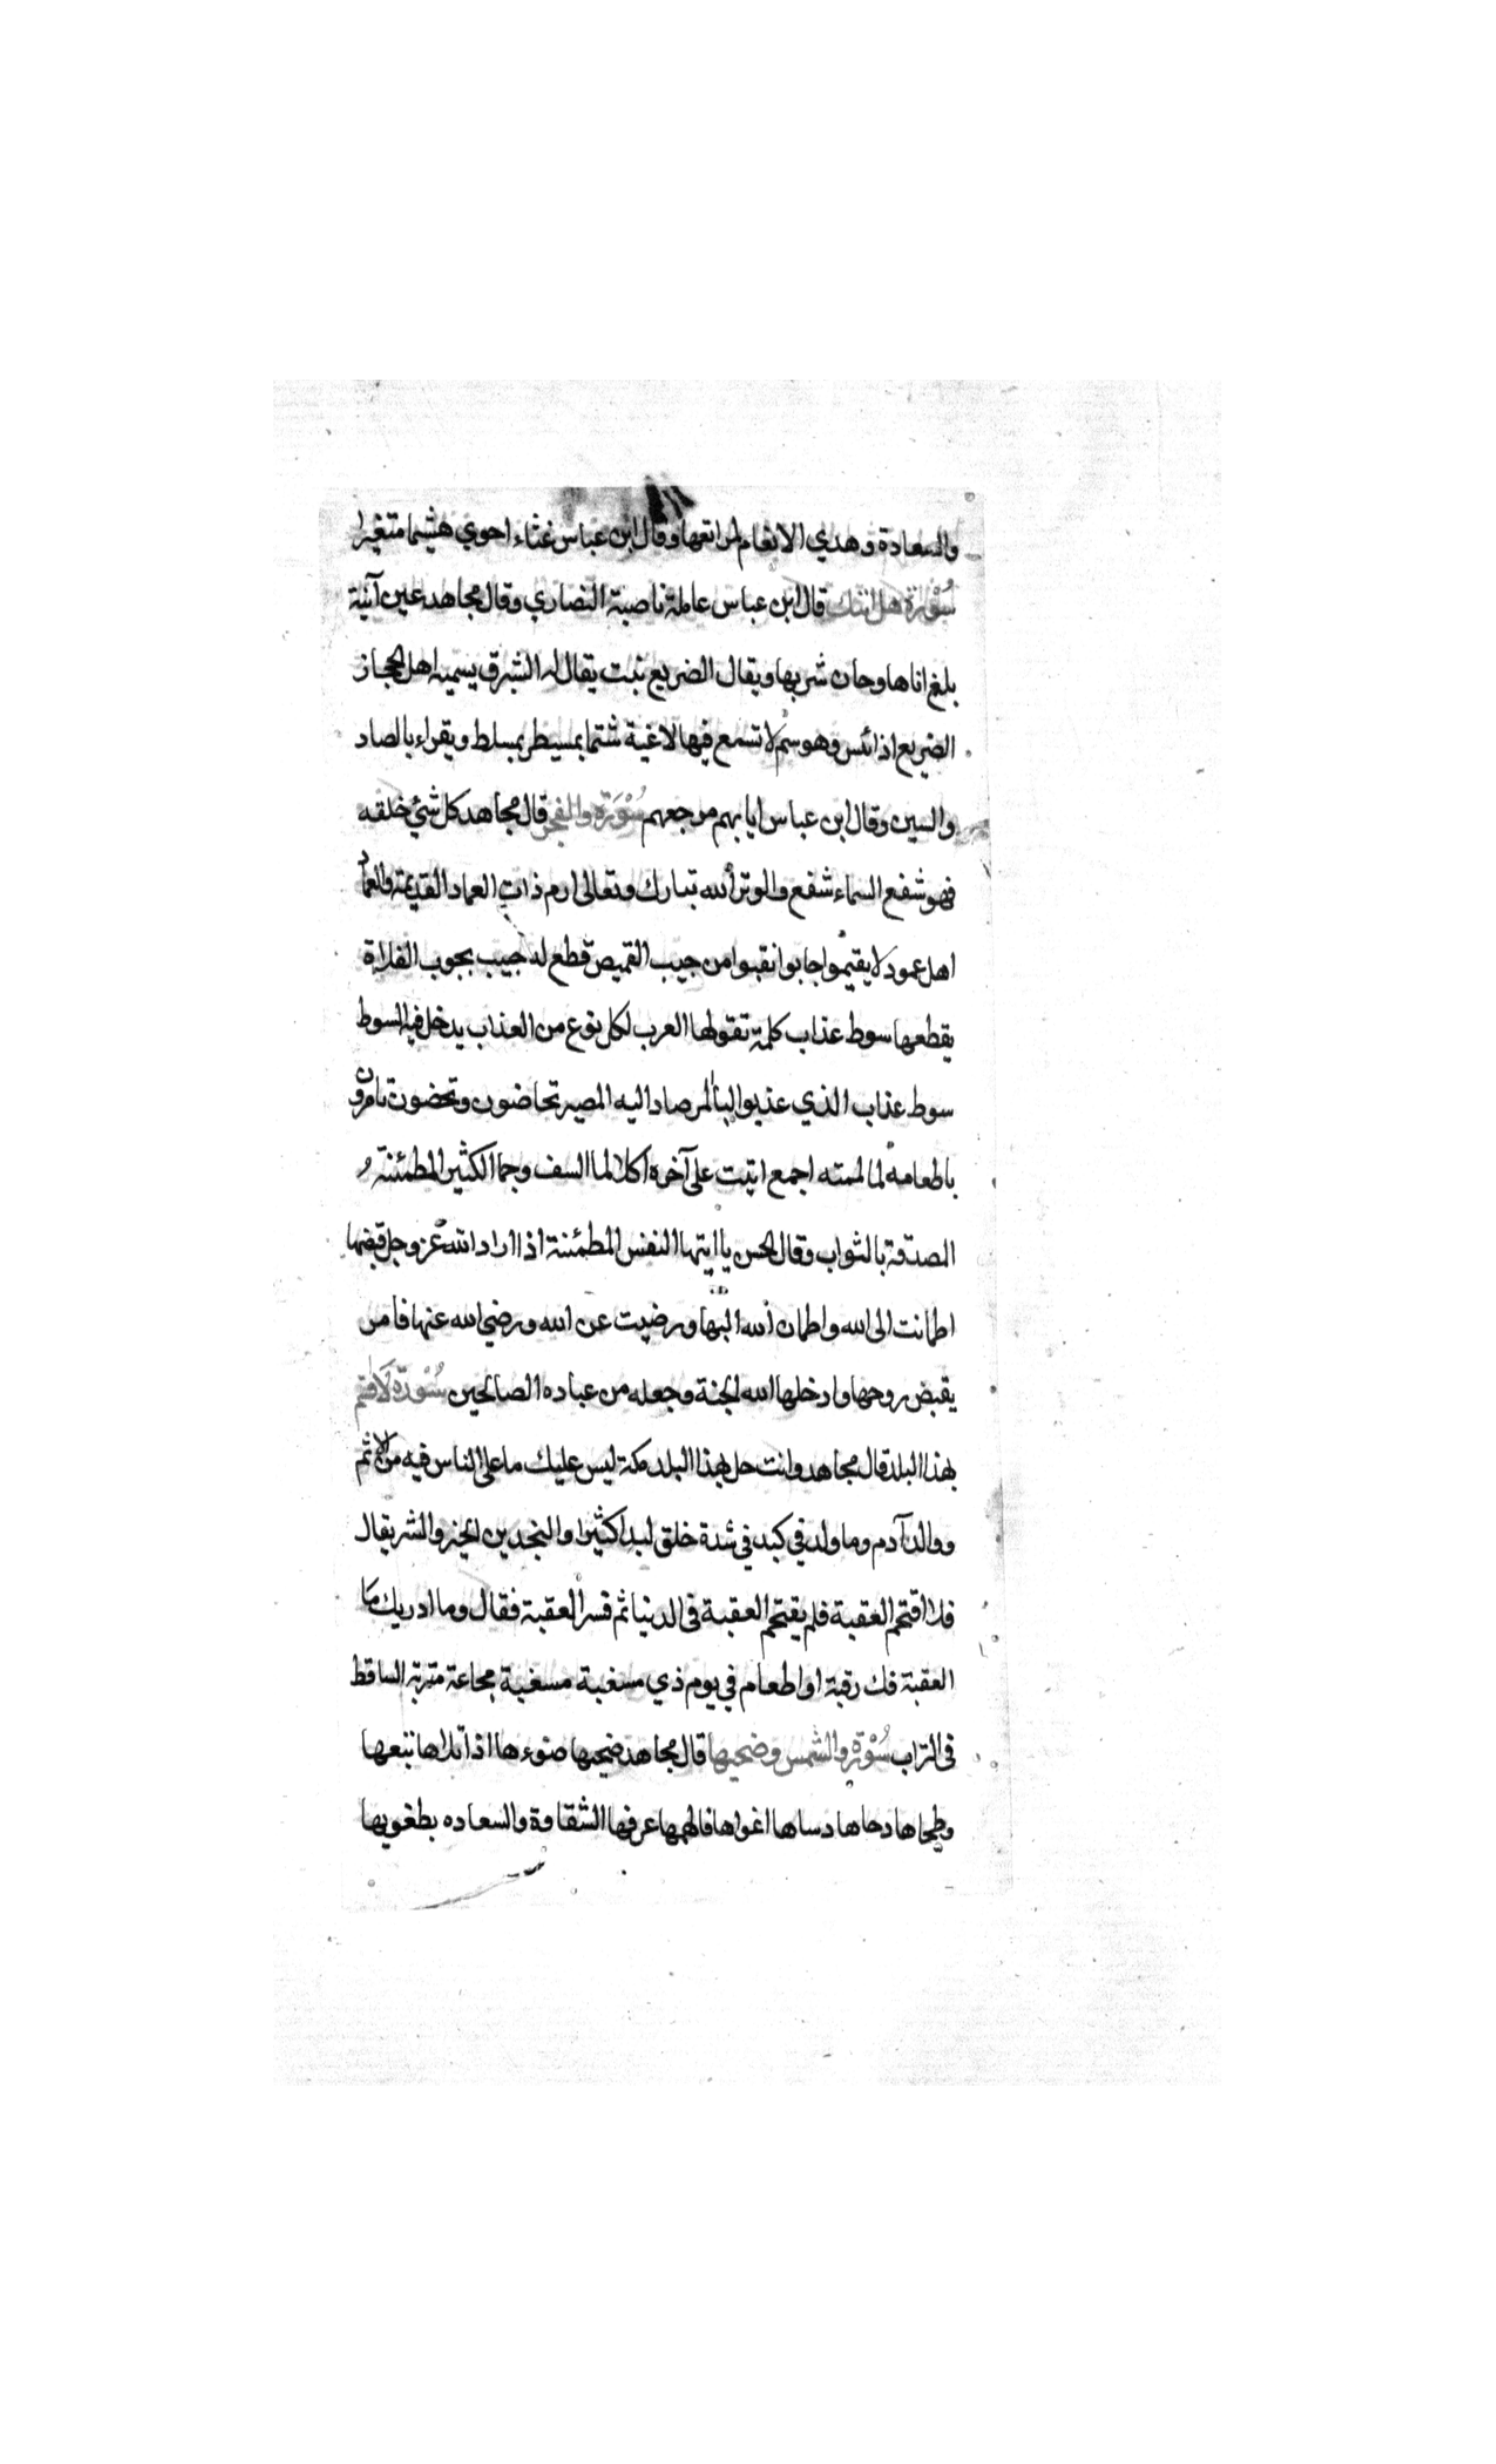 والسعادة وهدي الانعام لمراتعها وقال ابن عباس غثاء احوي هشيما متغيرا
سُوْرَة هل اتيك قال ابن عباس عاملة ناصبة النصاري وقال مجاهد عين آنية
بلغ اناها وحان شربها ويقال الضريع نبت يقال له الشبرق يسميه اهل الحجاز
الضريع اذا ئبس وهو سم لا تسمع فيها لاغية شتما بمسيطر بمسلط ويقراء بالصاد
والسين وقال ابن عباس ايابهم مرجعهم سُوْرَة والفجر قال مجاهد كل شئ خلقه
فهو شفع السماء شفع والوتر الله تبارك وتعالى ارم ذات العماد القديمة والعماد
اهل عمود لا يقيموا جابوا نقبوا من جيب القميص قطع له جيب يجوب الفلاة
يقطعها سوط عذاب كلمة تقولها العرب لكل نوع من العذاب يدخل فيه السوط
سوط عذاب الذي عذبوا لبالمرصاد اليه المصير تحاضون وتحضون تامرون
باطعامه لما لمته اجمع اتيت على آخره اكلا لما السف وجما الكثير المطمئنة
المصدقة بالثواب وقال الحسن يا ايتها النفس المطمئنة اذا اراد الله عز وجل قبضها
اطمانت الى الله واطمان الله اليها ورضيت عن الله ورضي الله عنها فامر
يقبض روحها وادخلها الله الجنة وجعله من عباده الصالحين سُوْرَة لَا اقسم
بهذا البلد قال مجاهد وانت حل بهذا البلد مكة ليس عليك ما على الناس فيه من الاثم
ووالد آدم وما ولد في كبد في شدة خلق لبدا كثيرا والنجدين الخير والشر يقال
فلا اقتحم العقبة فلم يقتحم العقبة في الدنيا ثم فسر العقبة فقال وما ادريك مَا
العقبة فك رقبة او اطعام في يوم ذي مسغبة مسغبة مجاعة متربة الساقط
في التراب سُوْرَة والشمس وضحيها قال مجاهد ضحيها ضوءها اذا تلاها تبعها
وطحاها دحاها دساها اغواها فالهمها عرفها الشقاوة والسعاده بطغويها